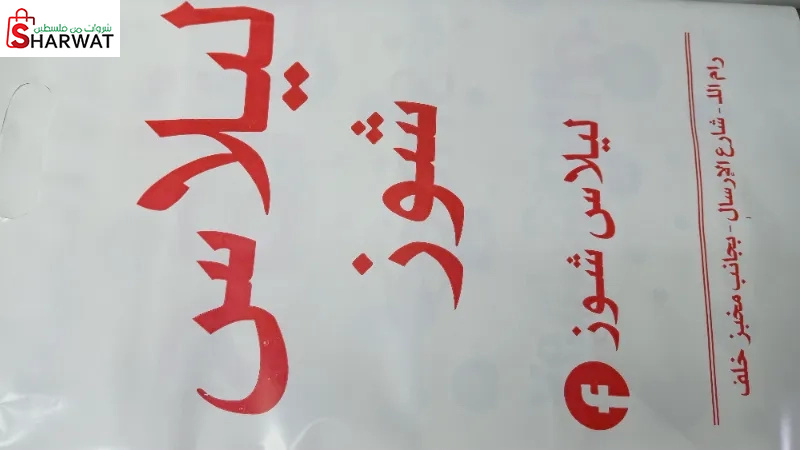 شروات من فلسطين
SHARWAT
ليلاس
شوز
ليلاس شوز
رام الله - شارع الإرسال - بجانب مخبز خلف